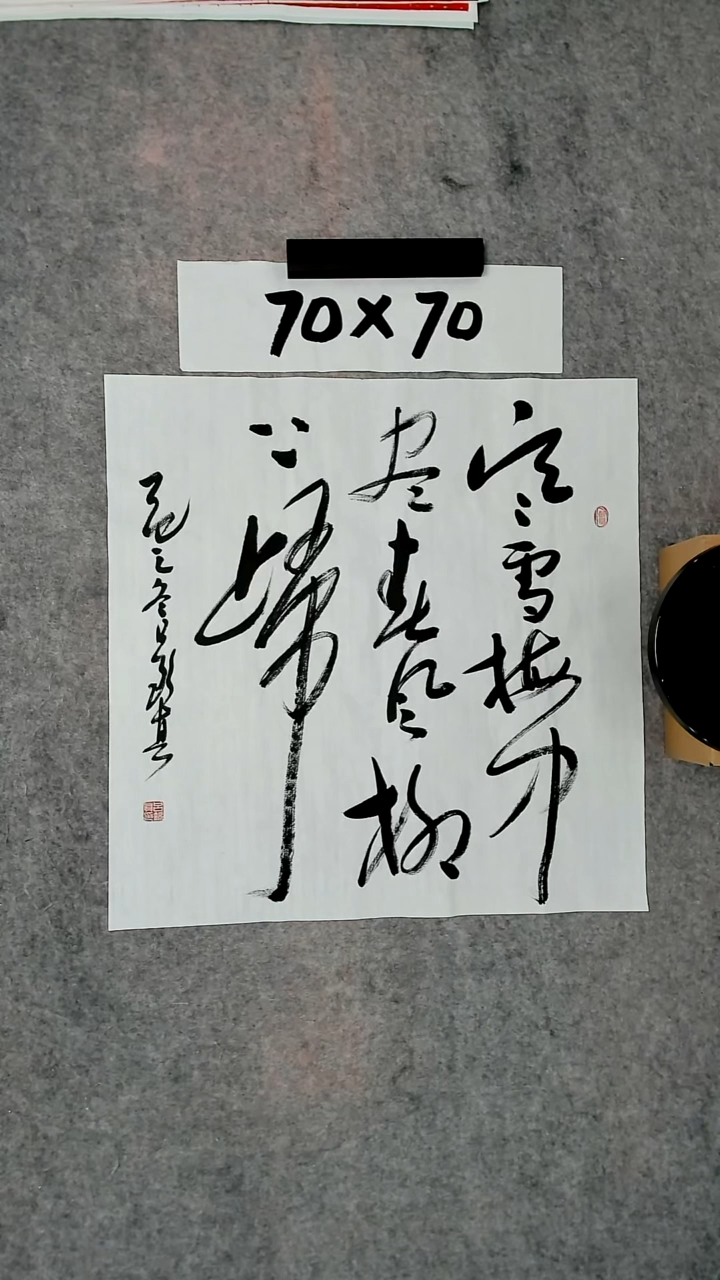 70×70
寒雪梅中
尽春风柳
上歸